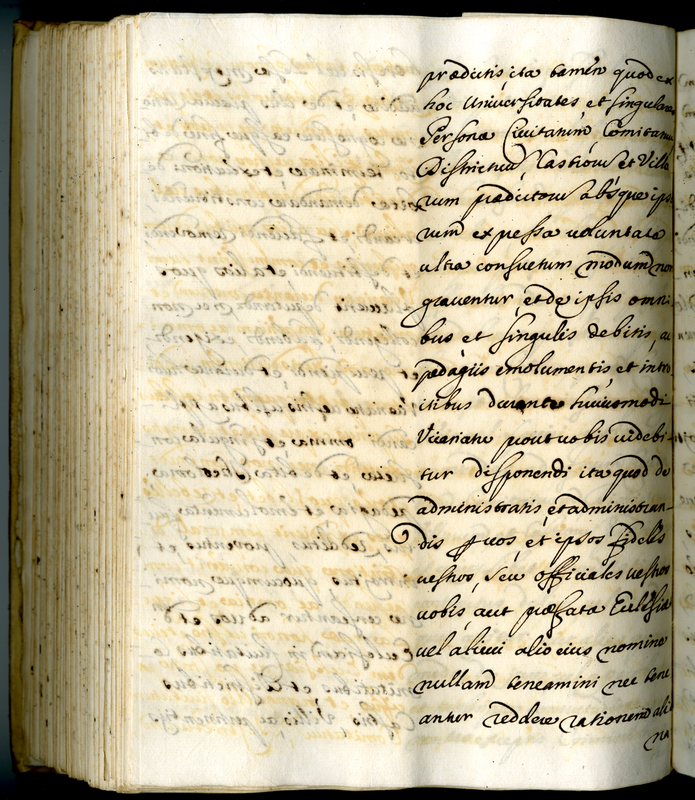 prædictis ita tamen quod ex
hoc Universitates, et singulares
Personæ Civitatum, Comitatuu
Districtuu, Castrorū et Villa
rum prædictorū absque ipso
rum expressa voluntate
ultra consuetum modum non
graventur, et de ipsis omni
bus et singulis debitis, ac
pedagiis emolumentis et intro
itibus durante huiusmodi
Vicariatu prout vobis videbi
tur disponendi ita quod de
administratis et administran
dis per vos et ipsos fideles
vestros, seu officiales vestros
vobis aut præfatæ Ecclesiæ
vel alicui alio eius nomine
nullam teneamini nec tene
antur reddere rationem ali